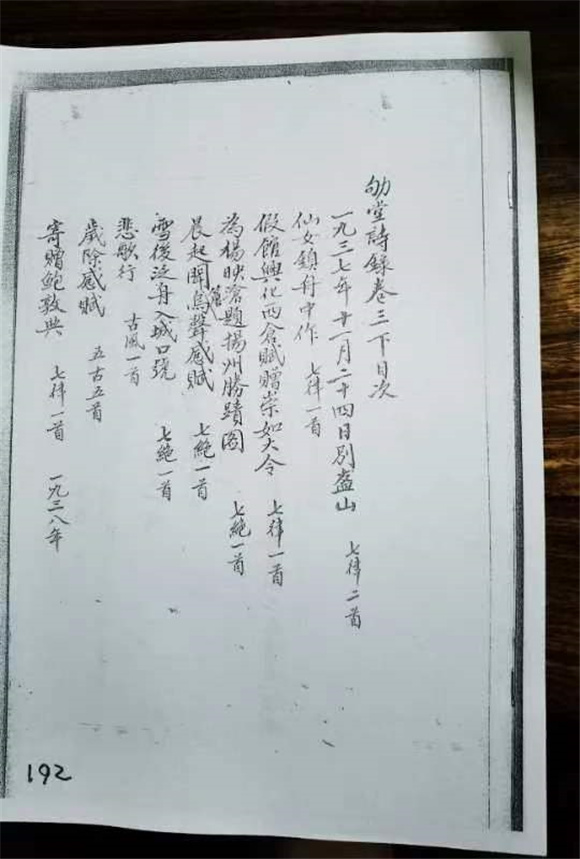 劬堂詩錄卷三下目次
一九三七年十一月二十四日別盋山 七律二首
仙女鎮舟中作 七律一首
假館興化西倉賦贈崇如大令 七律一首
為楊映滄題揚州勝蹟圖 七絕一首
晨起聞鳥聲感賦 七絕一首
雪後泛舟入城口號 七絕一首
悲歌行 古風一首
歲除感賦 五古五首
寄贈鮑敦典 七律一首 一九三八年
192